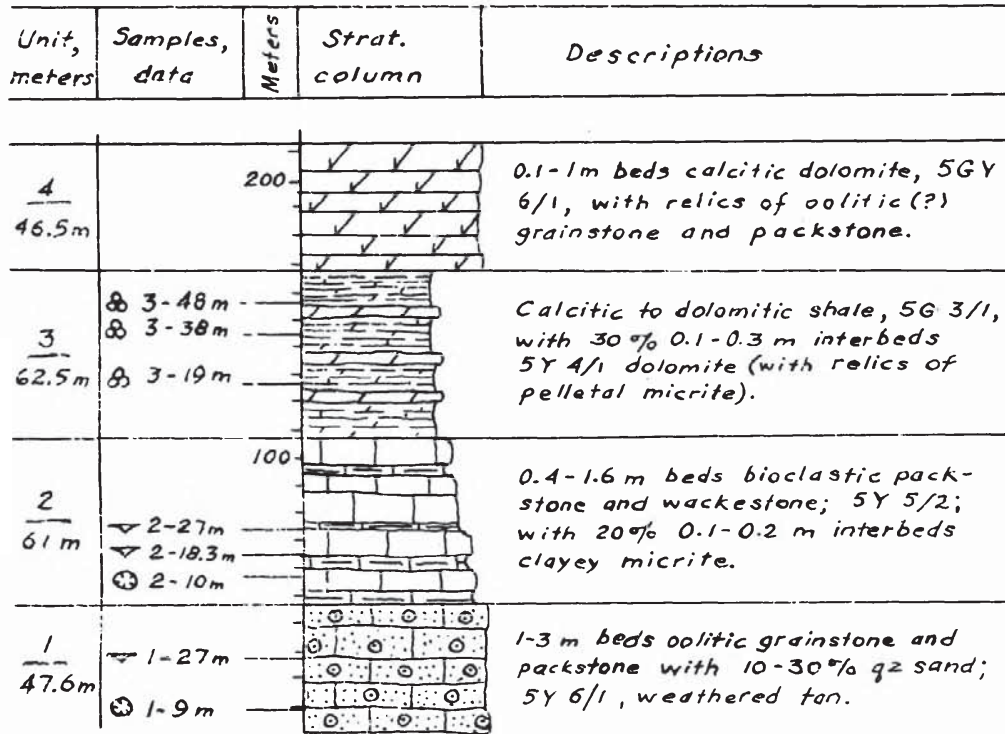 Unit, meters
Samples, data
Meters
Strat. column
Descriptions
4
46.5m
200
0.1-1m beds calcitic dolomite, 5GY
6/1, with relics of oolitic (?)
grainstone and packstone.
3
62.5m
3-48m
3-38m
3-19m
Calcitic to dolomitic shale, 5G 3/1,
with 30% 0.1-0.3 m interbeds
5Y 4/1 dolomite (with relics of
pelletal micrite).
2
61 m
100
2-27m
2-18.3m
2-10m
0.4-1.6 m beds bioclastic pack-
stone and wackestone; 5Y 5/2;
with 20% 0.1-0.2 m interbeds
clayey micrite.
1
47.6m
1-27m
1-9m
1-3 m beds oolitic grainstone and
packstone with 10-30% qz sand;
5Y 6/1, weathered tan.